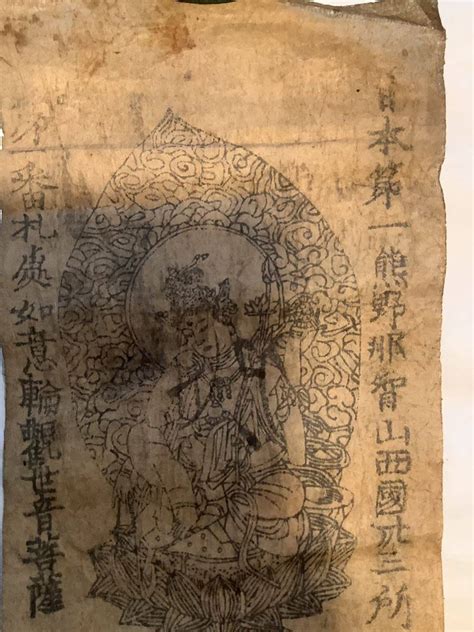 日本第一熊野那智山西國卅三所
番札處如意輪觀世音菩薩